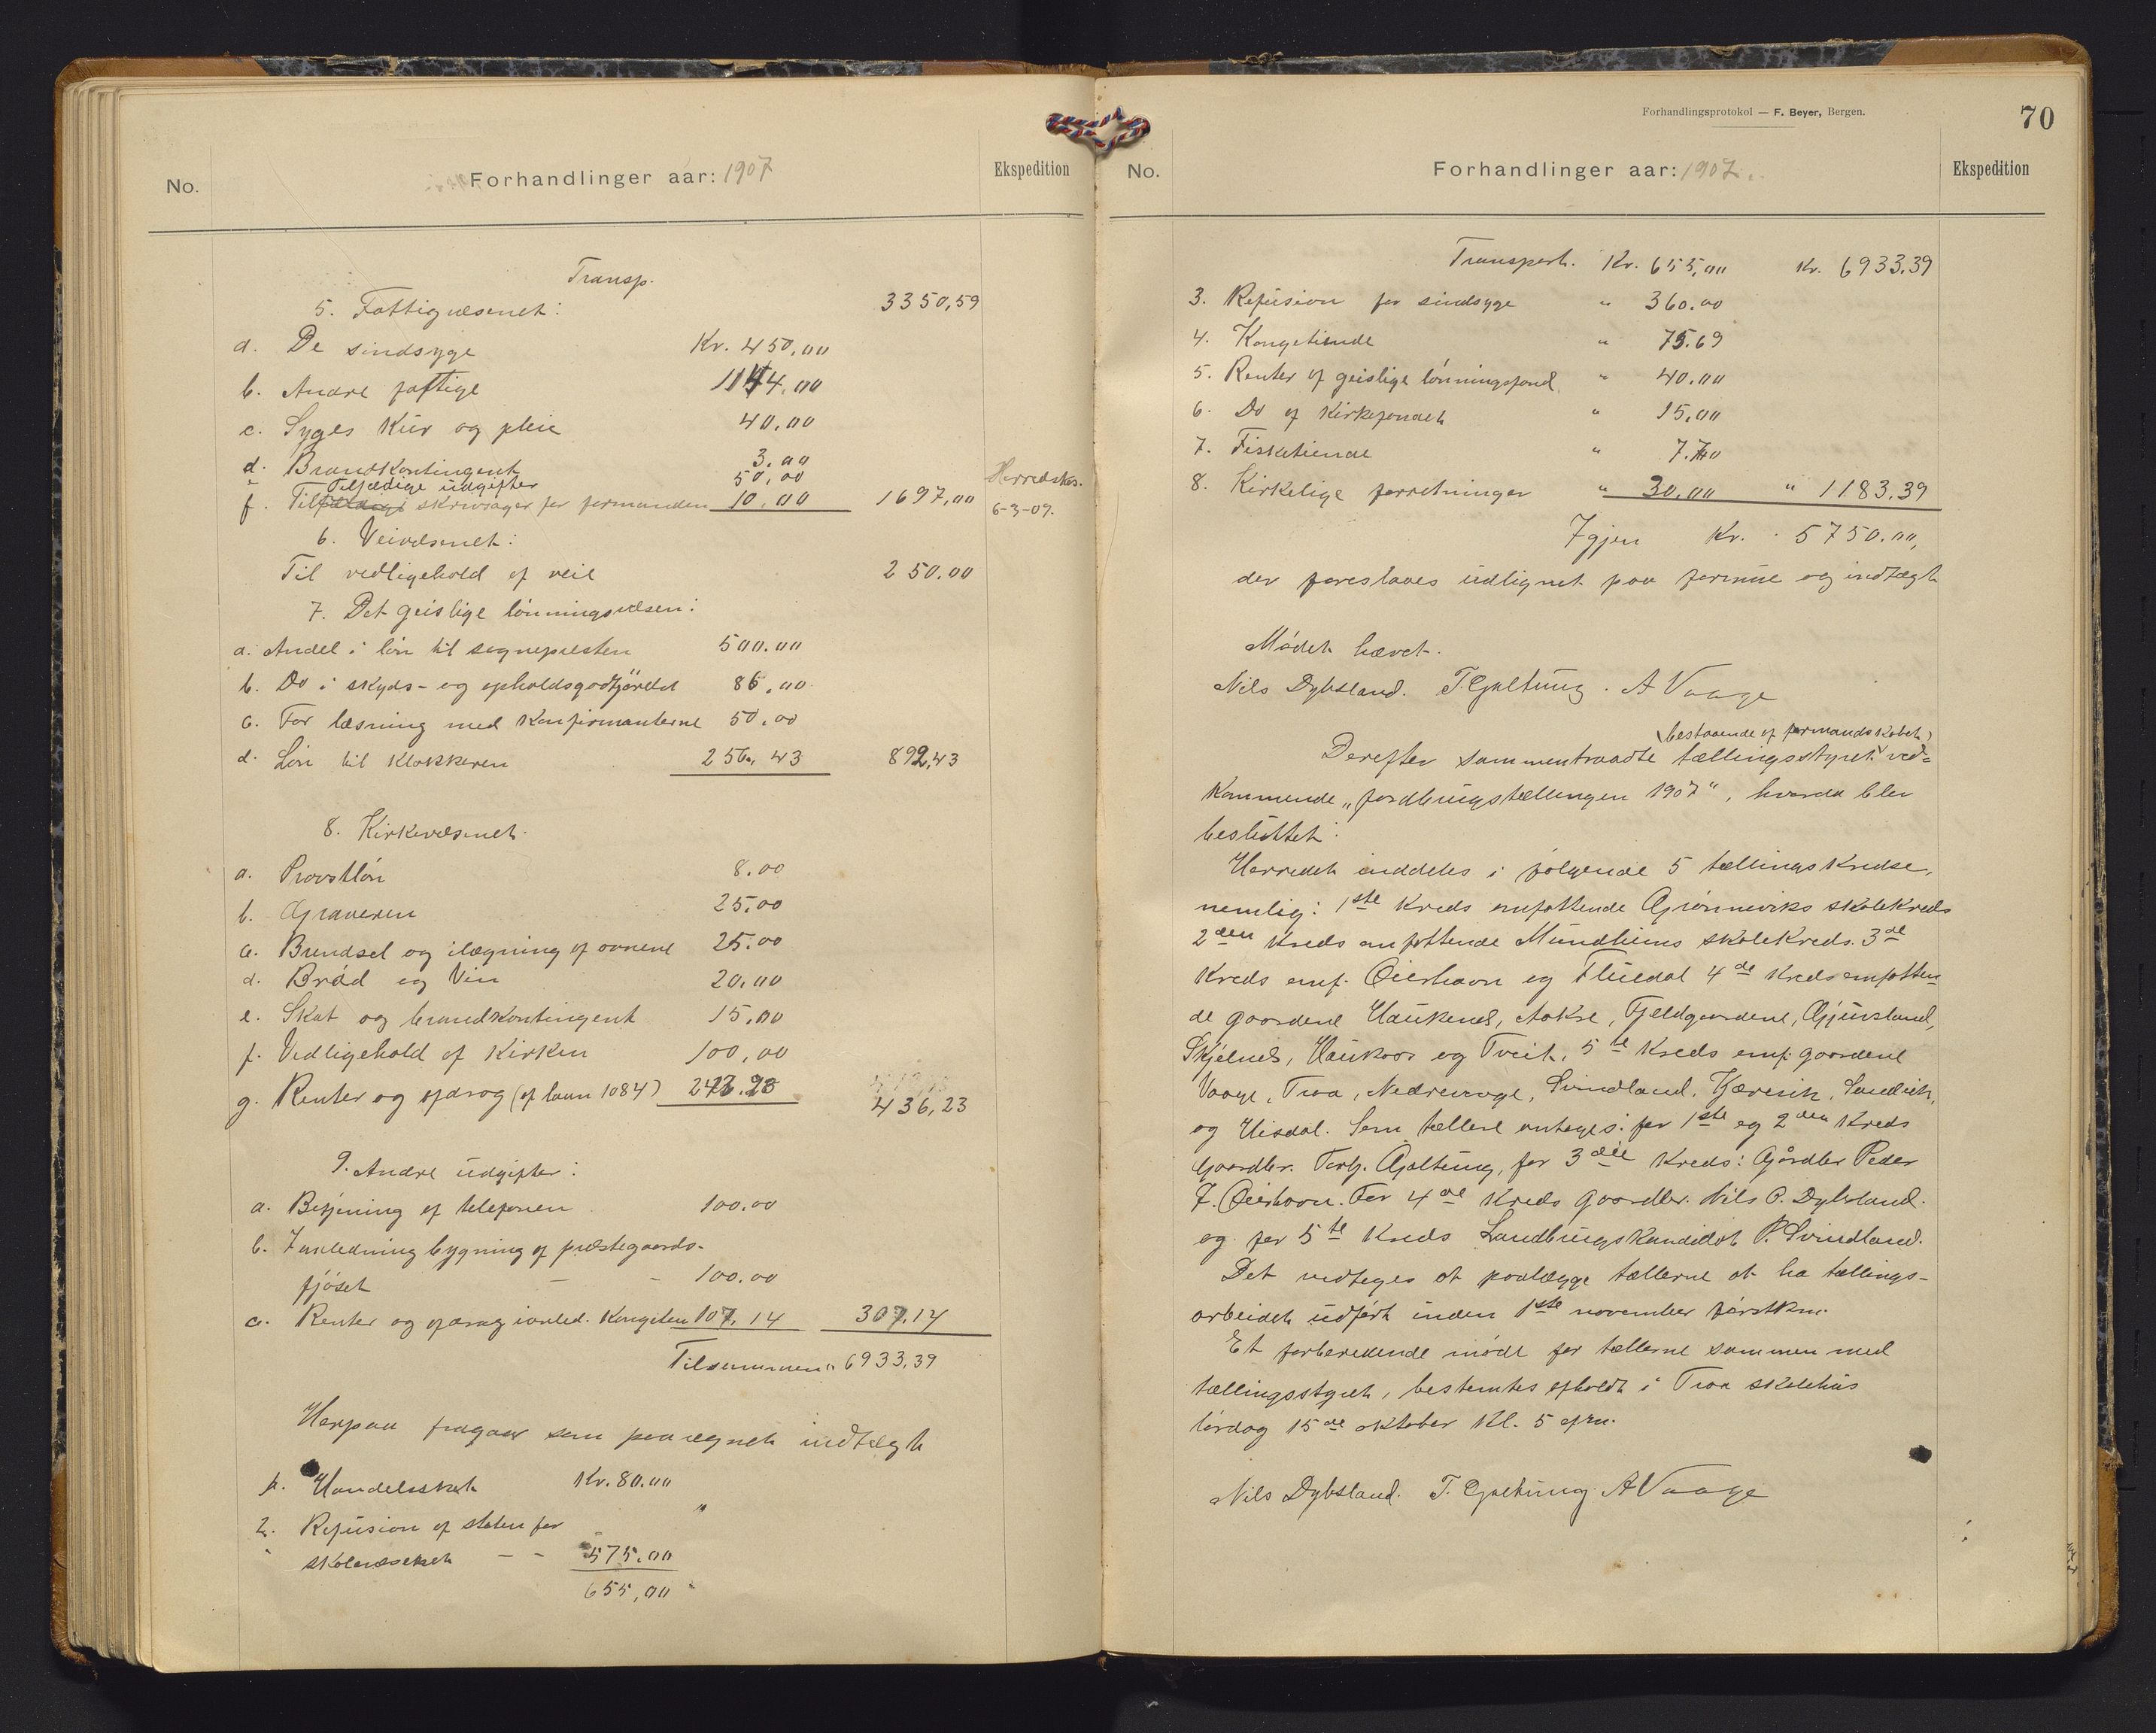 No.
Forhandlinger aar: 1907
Ekspedition
Transp.
5. Fattigvæsenet:
3350,59
a. De sindsyge Kr. 450,00
b. Andre fattige 1144,00
c. Syges Kur og pleie 40,00
d. Brandkontingent 3,00
e Tilfældige udgifter 50,00
f. Til skrivsager for formanden 10,00 1697,00
Herredskas.
6-3-07.
6. Veivæsenet:
Til vedligehold af veie 250.00
7. Det geislige lønningsvæsen:
a. Andel i løn til sognepresten 500.00
b. Do i skyds- og opholdsgodtjørelse 86,00
c. For læsning med Konfirmanterne 50.00
d. Løn til Klokkeren 256,43 892,43
8. Kirkevæsenet.
a. Provstløn 8.00
b. Graveren 25.00
c. Brendsel og ilægning af ovnene 25.00
d. Brød og Vin 20,00
e. Skat og brandkontingent 15,00
f. Vedligehold af Kirken 100,00
g. Renter og afdrag (af laan 1084) 243.23
436,23
9. Andre udgifter:
a. Betjening af telefonen 100.00
b. I anledning bygning af præstegaards-
fjøset - - 100.00
c. Renter og afdrag i anled. Kongetien 107,14 307,14
Tilsammen " 6933,39
Herpaa fragaar som paaregnet indtægt
1. Handelsskat Kr. 80.00
2. Refusion af staten for "
skolevæsenet - - 575.00
655,00
Forhandlingsprotokol — F. Beyer, Bergen.
70
No.
Forhandlinger aar: 1907.
Ekspedition
Transport. Kr. 655,00 Kr. 6933,39
3. Refusion for sindsyge " 360.00
4. Kongetiende " 75.69
5. Renter af geislige lønningsfond " 40.00
6. Do af Kirkefondet " 15,00
7. Fisketiende " 7.70
8. Kirkelige forretninger " 30.00 " 1183,39
Igjen Kr. 5750.00,
der foreslaaes udlignet paa formue og indtægt
Mødet hævet.
Nils Dybsland. T. Gjeltung. A Vaage
(bestaaende af formandskabet)
Derefter sammentraadte tællingsstyret ved=
kommende "jordbrugstællingen 1907", hvorda blev
besluttet:
Herredet inddeles i følgende 5 tællingskredse,
nemlig: 1ste Kreds omfattende Grønneviks skolekreds
2den Kreds omfattende Mundheims skolekreds. 3de
Kreds omf. Øierhavn og Fluedal 4de Kreds omfatten
de gaardene Haukenes, Aakre, Fjeldgaardene, Gjuvsland,
Skjelnes, Haukaas og Tveit, 5te Kreds omf. gaardene
Vaage, Traa, Nedrevaage, Svindland, Kjærevik, Sandvik,
og Uisdal. Som tællere antages: for 1ste og 2den Kreds
Gaardbr. Torb. Gjeltung, for 3die Kreds: Gårdbr Peder
J. Øierhavn. For 4de Kreds gaardbr. Nils O. Dybsland.
og for 5te Kreds Landbrugskandidat P. Svindland.
Det vedtages at paalægge tællerne at ha tællings-
arbeidet udført inden 1ste november førstkm.
Et forberedende møde for tællerne sammen med
tællingsstyret, bestemtes afholdt i Traa skolehus
lørdag 15de oktober Kl. 5 efm.
Nils Dybsland. T. Gjeltung. A Vaage